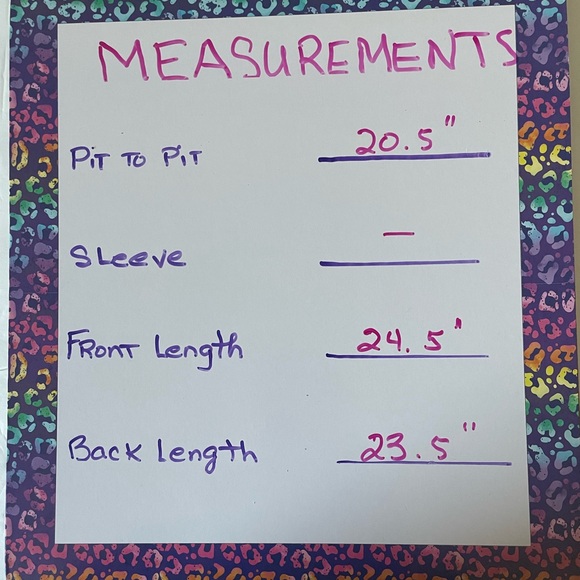 MEASUREMENTS
PiT TO PiT 20.5"
SLeeve —
FRONT Length 24.5"
Back Length 23.5"